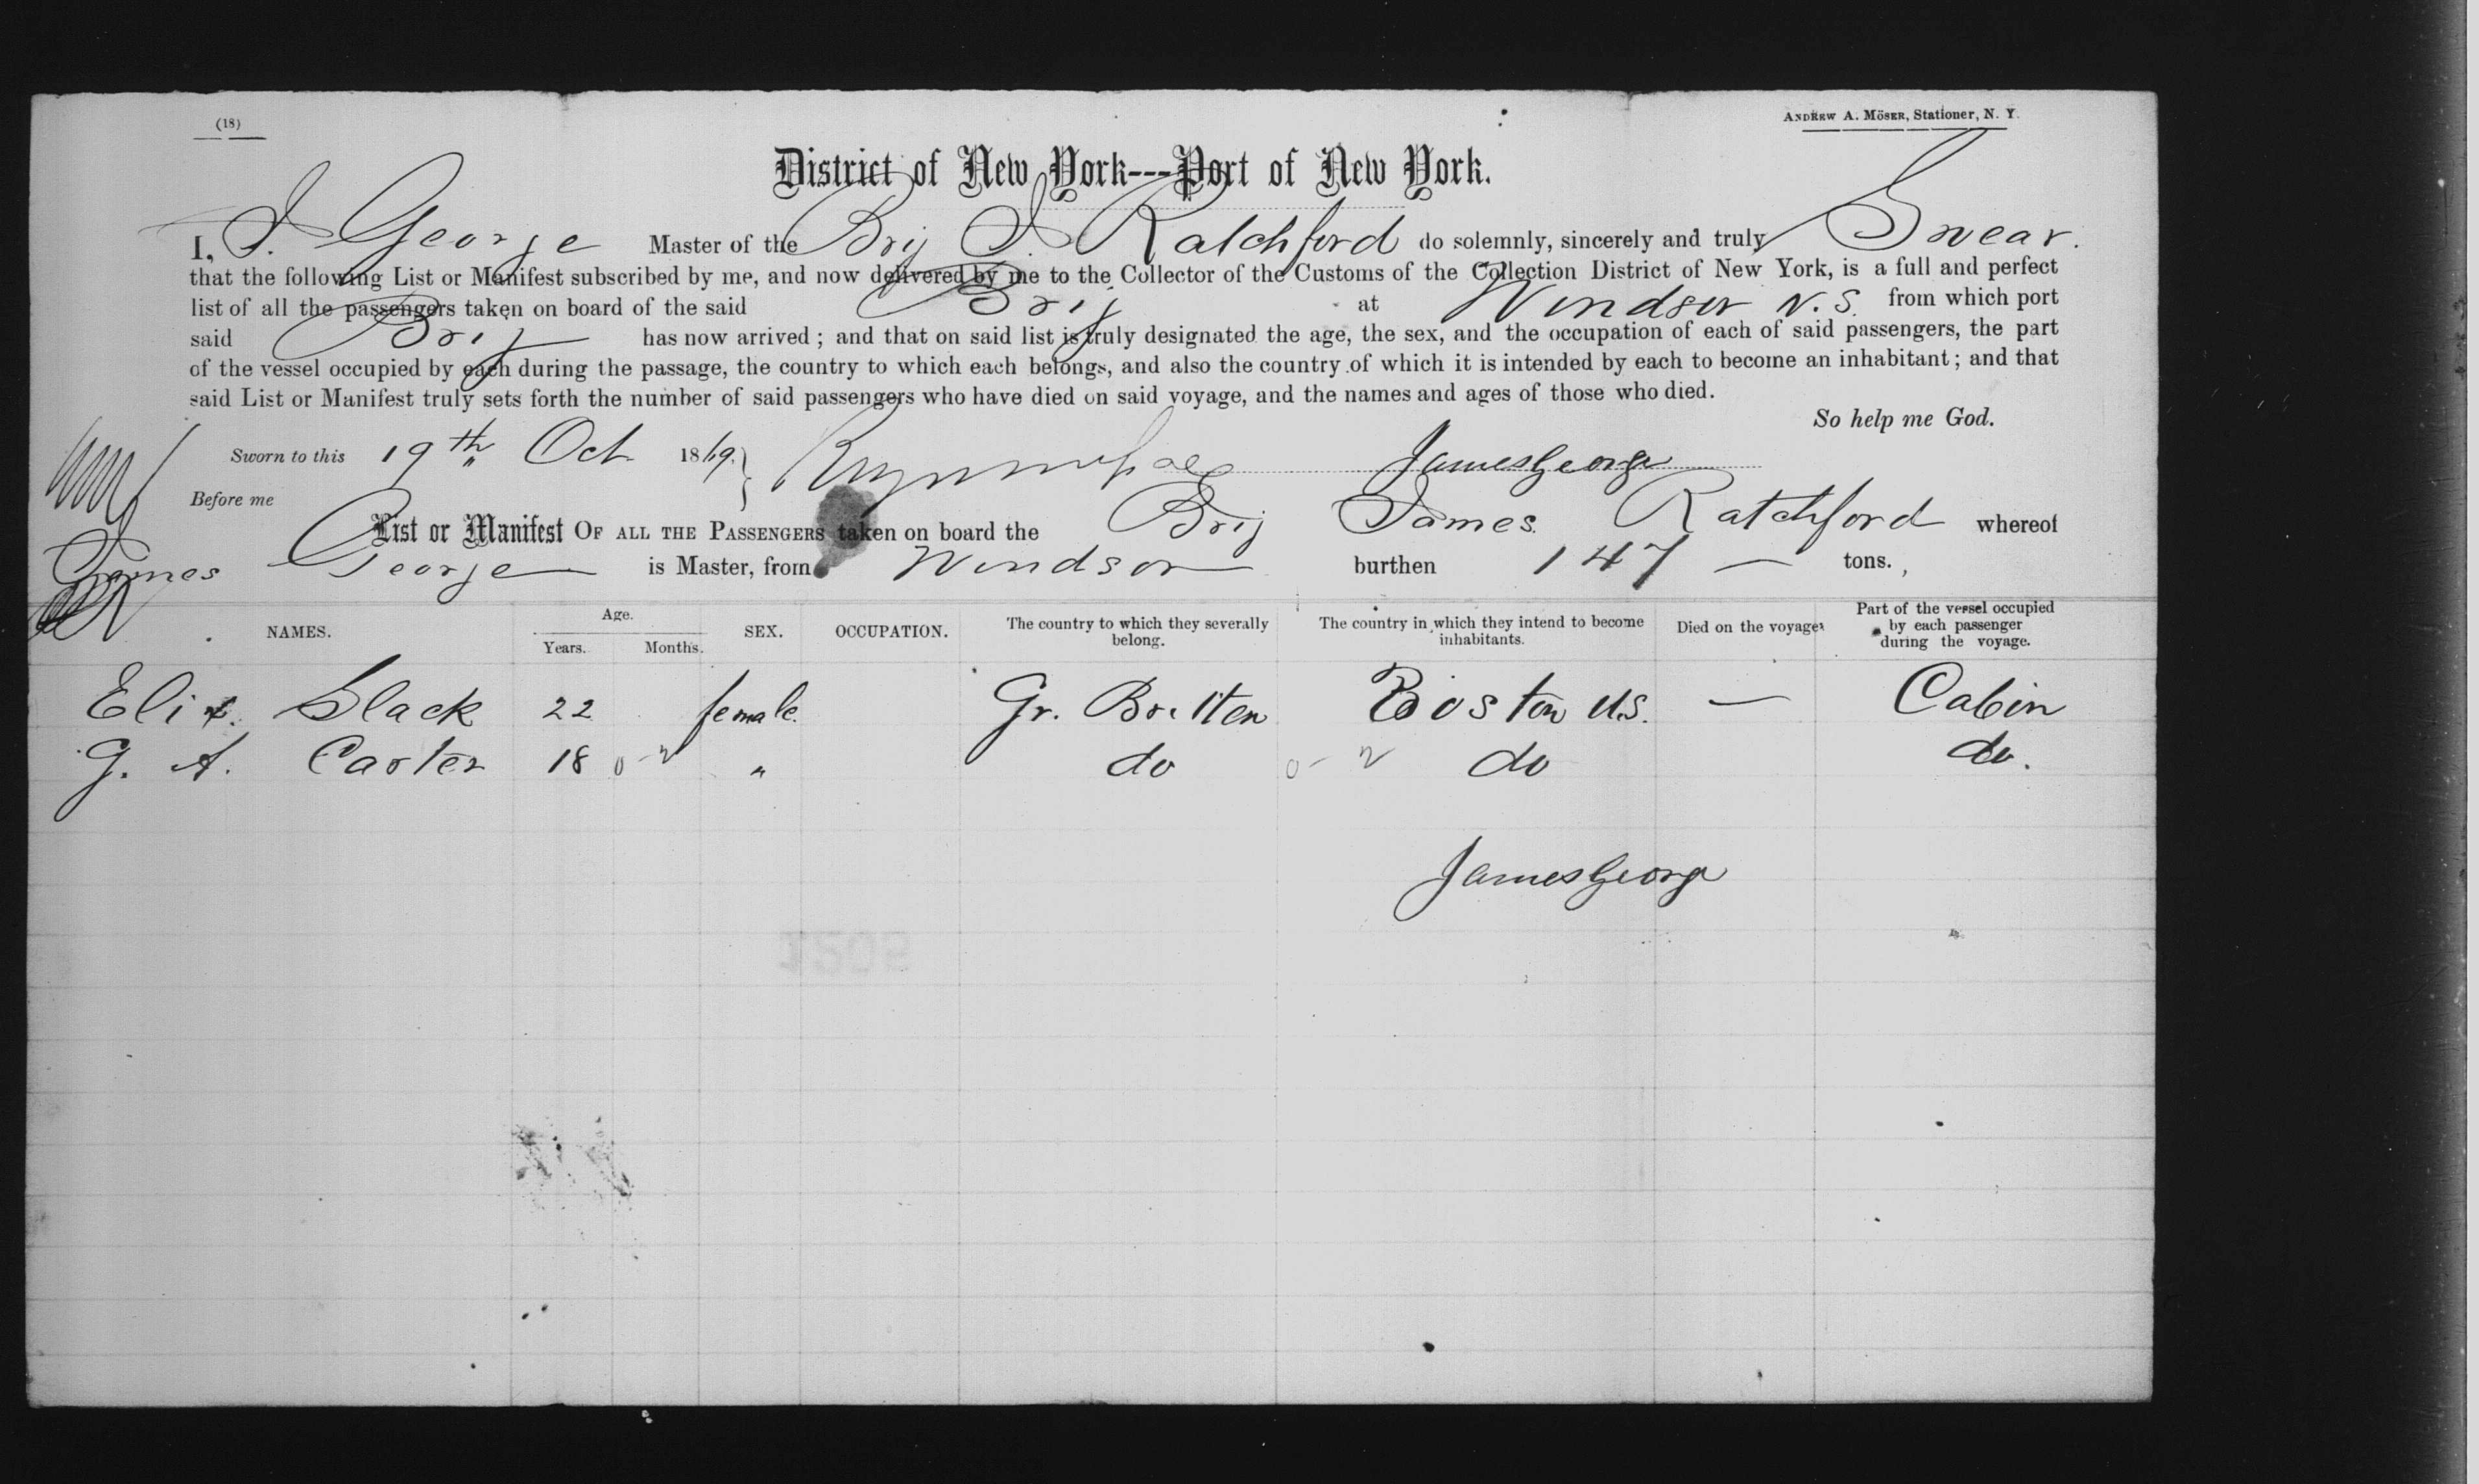 (18)
ANDREW A. MÖSER, Stationer, N. Y.
District of New York---Port of New York.
I, J. George Master of the Brig J. Ratchford do solemnly, sincerely and truly Swear.
that the following List or Manifest subscribed by me, and now delivered by me to the Collector of the Customs of the Collection District of New York, is a full and perfect
list of all the passengers taken on board of the said Brig at Windsor N.S. from which port
said Brig has now arrived ; and that on said list is truly designated the age, the sex, and the occupation of each of said passengers, the part
of the vessel occupied by each during the passage, the country to which each belongs, and also the country of which it is intended by each to become an inhabitant ; and that
said List or Manifest truly sets forth the number of said passengers who have died on said voyage, and the names and ages of those who died.
So help me God.
Sworn to this 19th Oct 1869 James George
Before me
List or Manifest OF ALL THE PASSENGERS taken on board the Brig James Ratchford whereof
James George is Master, from Windsor burthen 147 — tons.
NAMES. Age. Years. Months. SEX. OCCUPATION. The country to which they severally belong. The country in which they intend to become inhabitants. Died on the voyage. Part of the vessel occupied by each passenger during the voyage.
Eliz. Slack 22 female Gr. Britten Boston U.S. — Cabin
G. A. Carter 18 " do do do.
James George